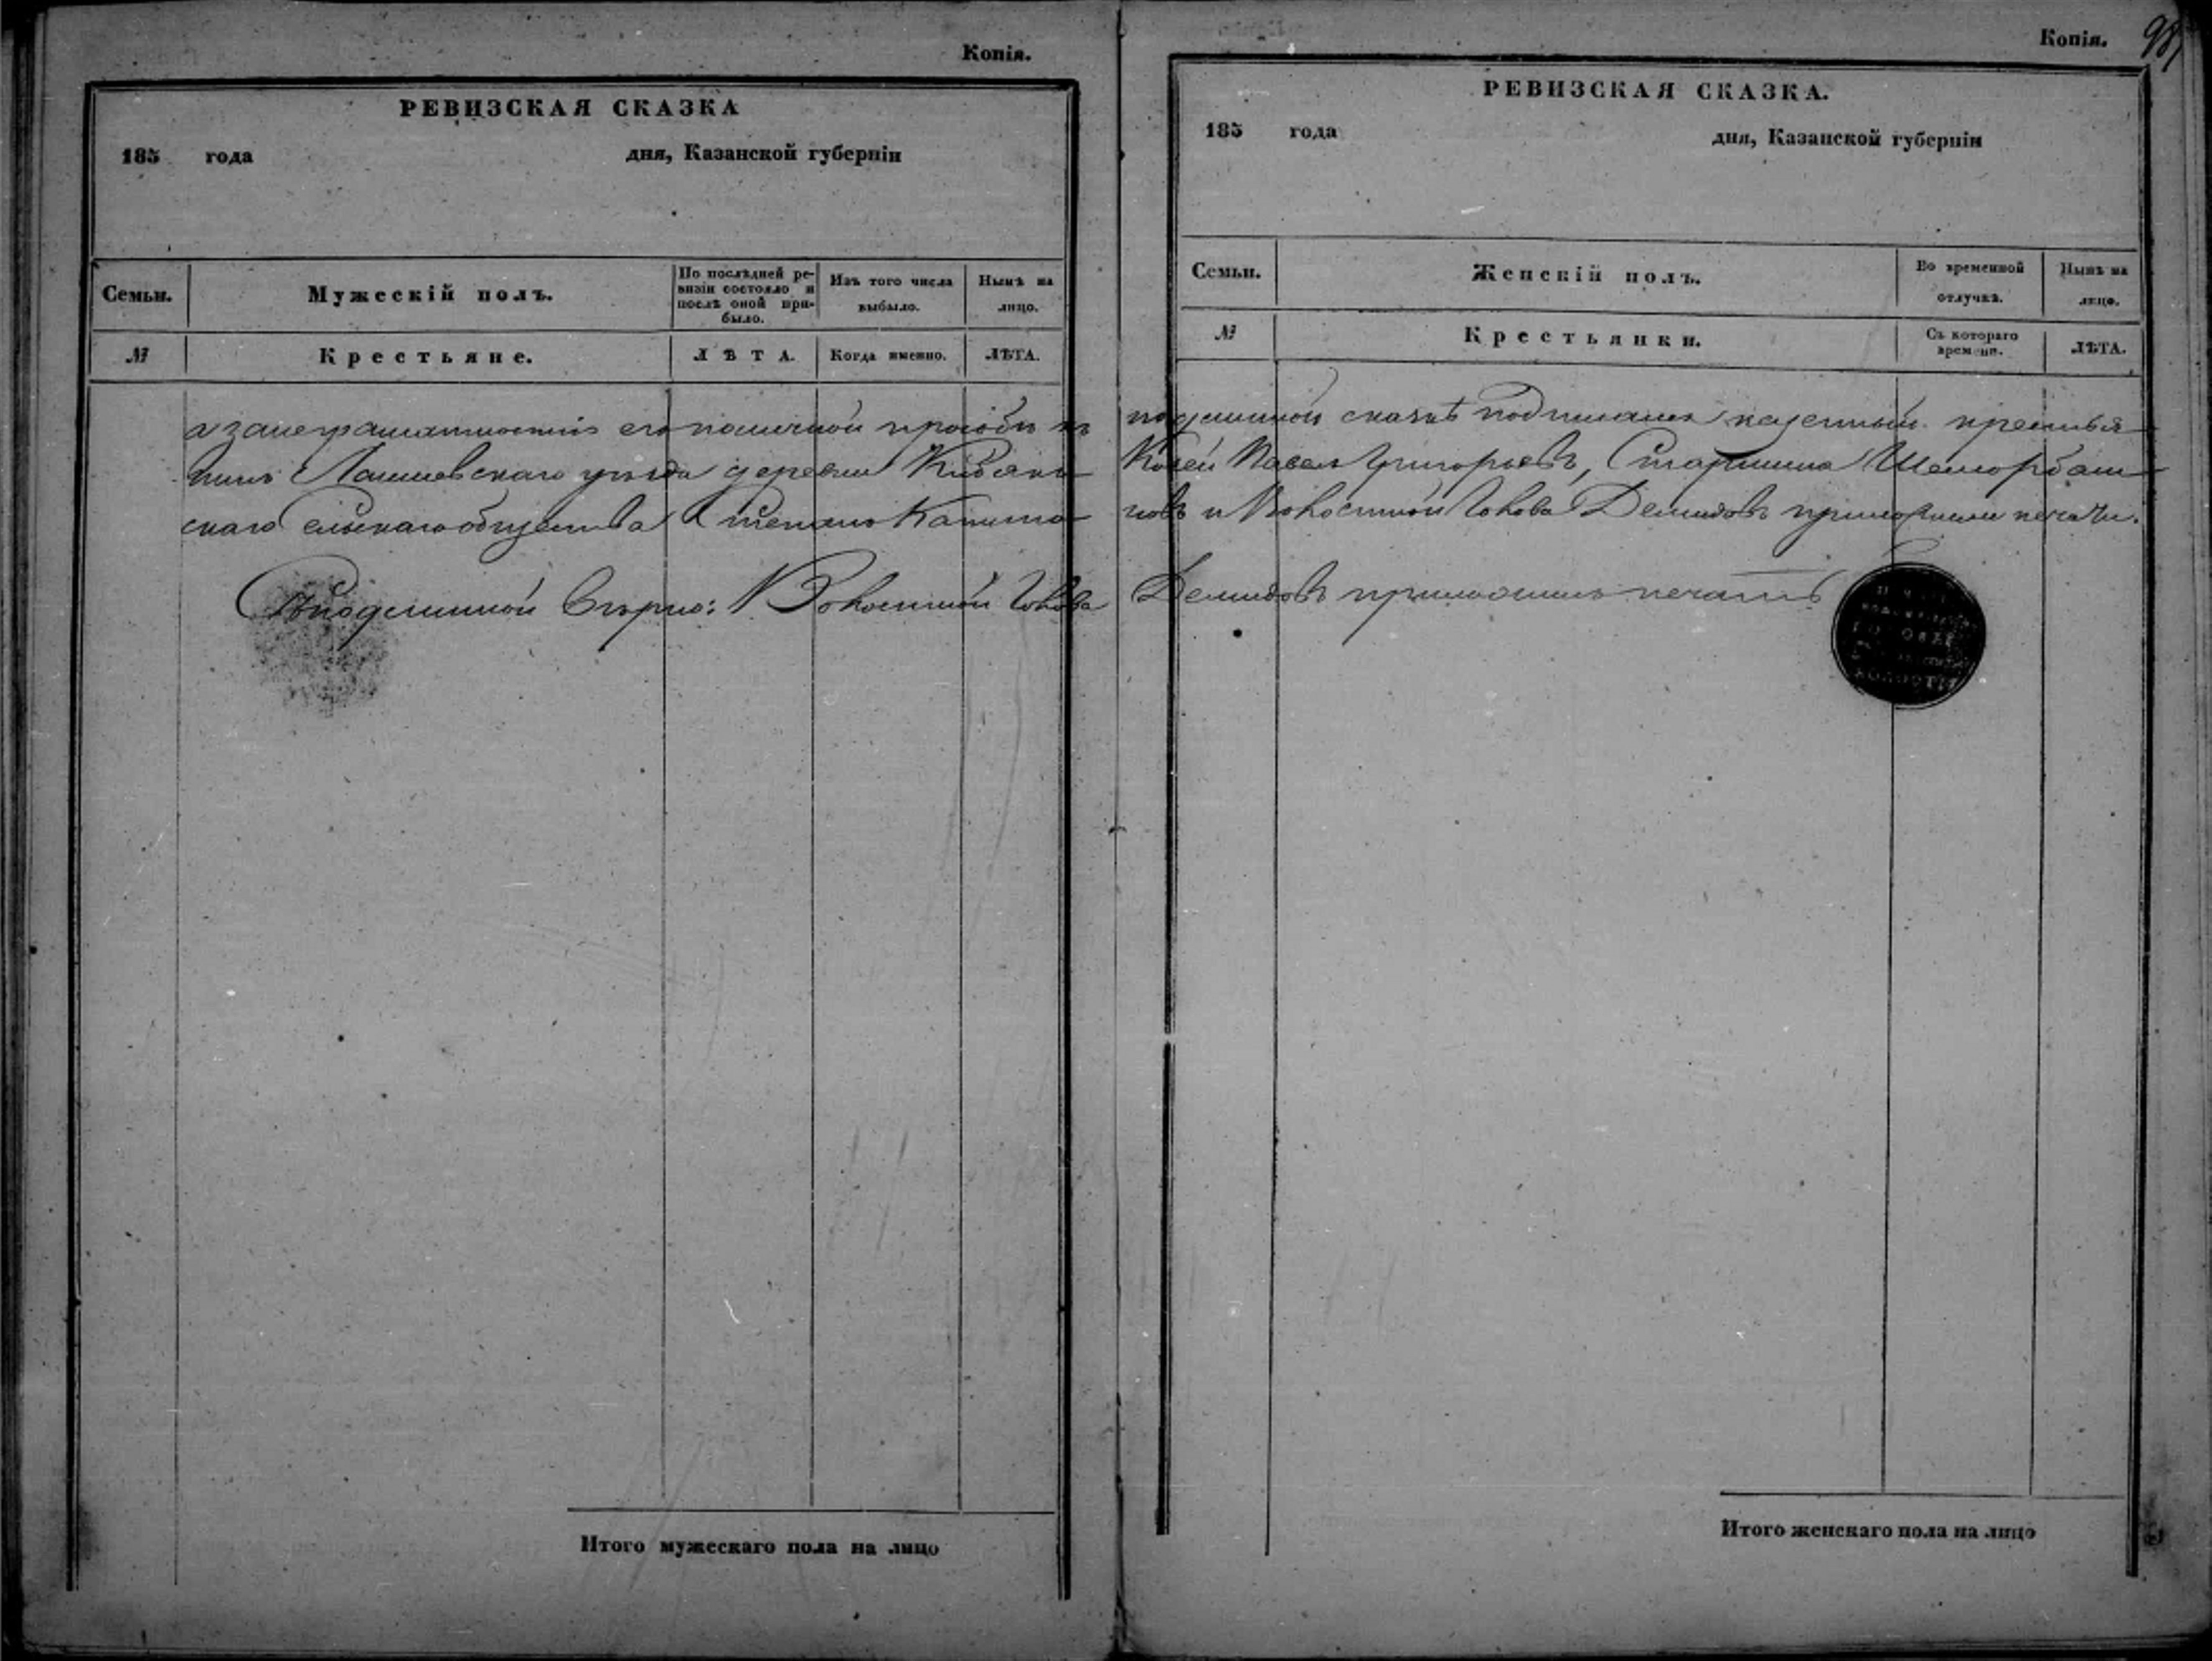 Копія.
РЕВИЗСКАЯ СКАЗКА
185 года дня, Казанской губерніи
Семьи.
Мужескій полъ.
По послѣдней ре-
визіи состояло и
послѣ оной при-
было.
Изъ того числа
выбыло.
Нынѣ на
лицо.
№
Крестьяне.
ЛѢТА.
Когда именно.
ЛѢТА.
а занеграматностію его поличной прозбѣ къ
нинъ Лаишевскаго уѣзда деревни
скаго сельскаго общества Степанъ
Съ подлинной вѣрно: Волостной Голова
Итого мужескаго пола на лицо
Копія.
98
РЕВИЗСКАЯ СКАЗКА.
185 года дня, Казанской губерніи
Семьи.
Женскій полъ.
Во временной
отлучкѣ.
Нынѣ на
лицо.
№
Крестьянки.
Съ котораго
времени.
ЛѢТА.
подлинной сказкѣ подписался казенный крестья
Козей Павелъ Григорьевъ, Старшина
и Волостной Голова Демидовъ приложили печати.
Демидовъ приложилъ печать
Итого женскаго пола на лицо